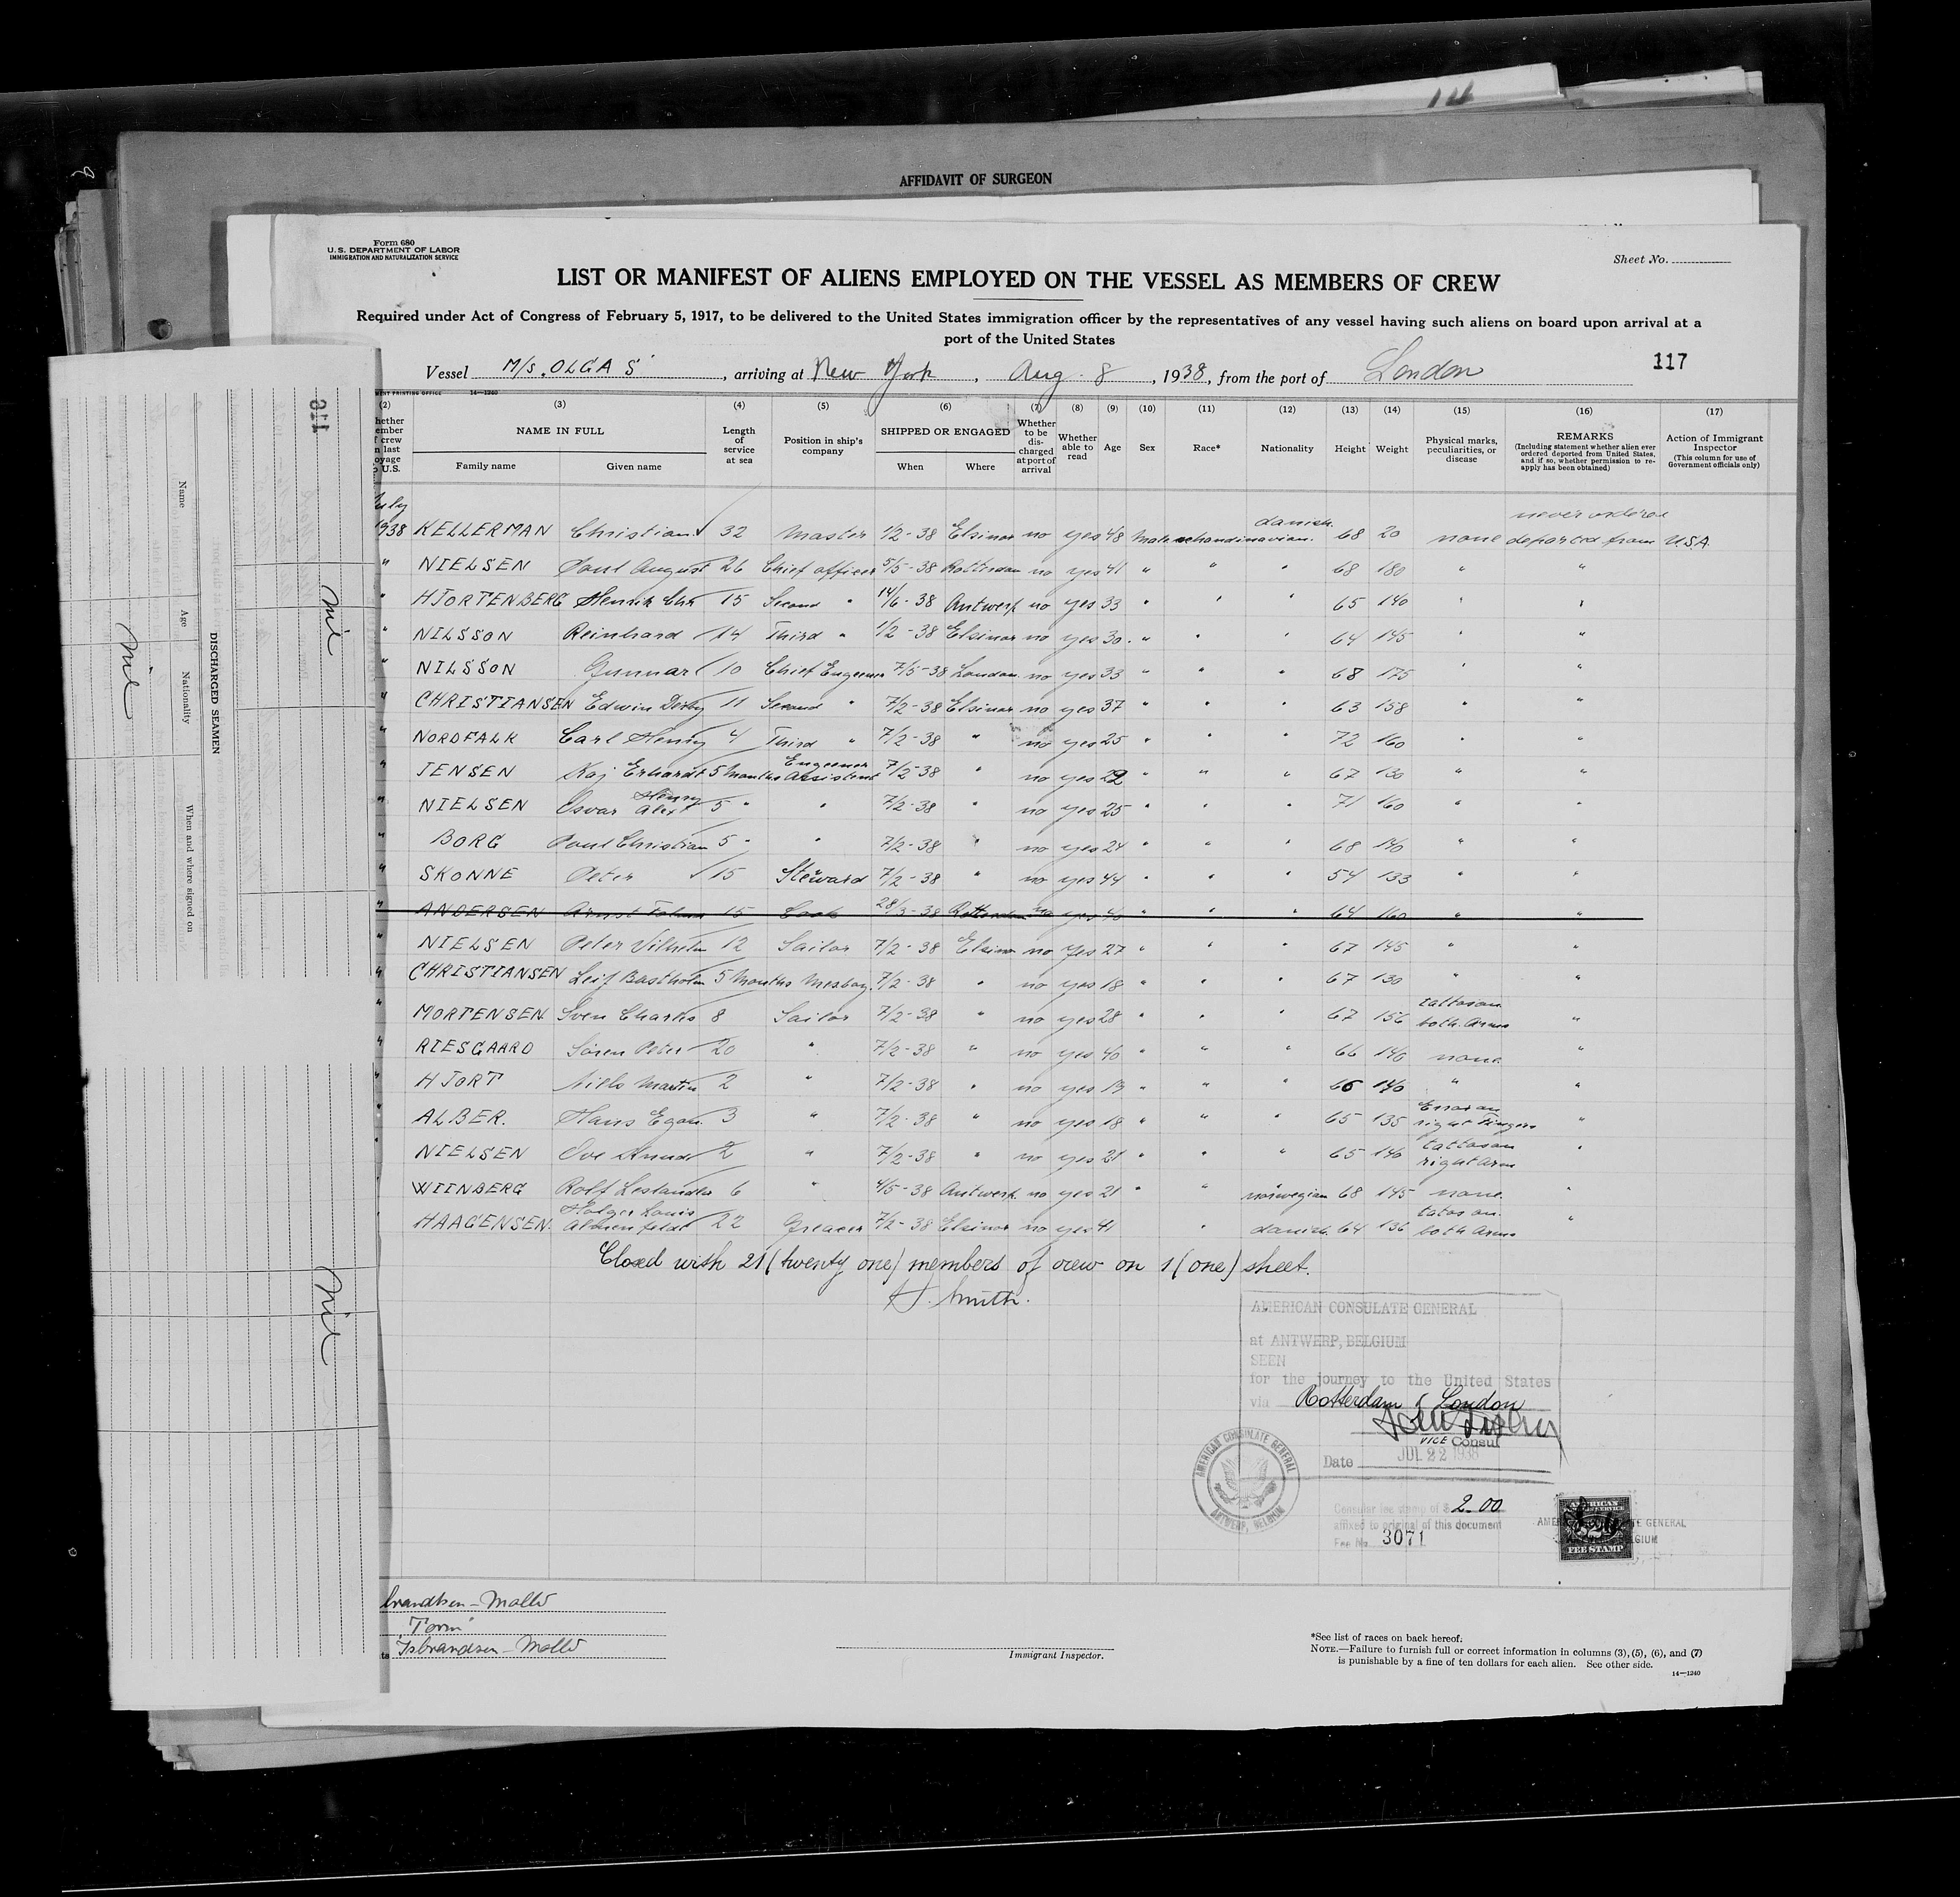 AFFIDAVIT OF SURGEON
Form 680
U. S. DEPARTMENT OF LABOR
IMMIGRATION AND NATURALIZATION SERVICE
Sheet No.
LIST OR MANIFEST OF ALIENS EMPLOYED ON THE VESSEL AS MEMBERS OF CREW
Required under Act of Congress of February 5, 1917, to be delivered to the United States immigration officer by the representatives of any vessel having such aliens on board upon arrival at a
port of the United States
Vessel M/s "OLGA S", arriving at New York, Aug. 8, 1938, from the port of London
117
14—1240
(2) (3) (4) (5) (6) (7) (8) (9) (10) (11) (12) (13) (14) (15) (16) (17)
NAME IN FULL
Family name Given name
Length of service at sea
Position in ship's company
SHIPPED OR ENGAGED
When Where
Whether to be discharged at port of arrival
Whether able to read
Age
Sex
Race*
Nationality
Height
Weight
Physical marks, peculiarities, or disease
REMARKS
(Including statement whether alien ever ordered deported from United States, and if so, whether permission to reapply has been obtained)
Action of Immigrant Inspector
(This column for use of Government officials only)
July
1938 KELLERMAN Christian 32 Master 1/2-38 Elsinor no yes 48 Male schandinavian. danish. 68 20 none never ordered deported from U.S.A.
" NIELSEN Poul August 26 Chief officer 5/5-38 Rotterdam no yes 41 " " " 68 180 " "
" HJORTENBERG Henrik Chr 15 Second " 14/6-38 Antwerp no yes 33 " " " 65 140 " "
" NILSSON Reinhard 14 Third " 1/2-38 Elsinor no yes 30 " " " 64 145 " "
" NILSSON Gunnar 10 Chief Engeneer 7/5-38 London no yes 33 " " " 68 175 " "
" CHRISTIANSEN Edwin 11 Second " 7/2-38 Elsinor no yes 37 " " " 63 158 " "
" NORDFALK Carl Henry 4 Third " 7/2-38 " no yes 25 " " " 72 160 " "
" JENSEN Kaj Erhardt 5 Months Engeneer Assistent 7/2-38 " no yes 22 " " " 67 130 " "
" NIELSEN Osvar Henry Alex 5 " " 7/2-38 " no yes 25 " " " 71 160 " "
" BORG Poul Christian 5 " " 7/2-38 " no yes 24 " " " 68 140 " "
" SKONNE Peter 15 Steward 7/2-38 " no yes 44 " " " 54 133 " "
" ANDERSEN 15 Cook 28/3-38 Rotterdam no yes 40 " " " 64 160 " "
" NIELSEN Peter Vilhelm 12 Sailor 7/2-38 Elsinor no yes 27 " " " 67 145 " "
" CHRISTIANSEN Leif Bastholm 5 Months Mesboy. 7/2-38 " no yes 18 " " " 67 130 " "
" MORTENSEN Sven Charles 8 Sailor 7/2-38 " no yes 28 " " " 67 156 tattooan both. arms "
" RIESGAARD Sören Peter 20 " 7/2-38 " no yes 40 " " " 66 140 none. "
" HJORT Niels Martin 2 " 7/2-38 " no yes 19 " " " 66 140 " "
" ALBER. Hans Egon. 3 " 7/2-38 " no yes 18 " " " 65 135 right Fingers "
" NIELSEN Ove Knud 2 " 7/2-38 " no yes 21 " " " 65 146 tattooan right arm "
WIINBERG Rolf 6 " 4/5-38 Antwerp. no yes 21 " " norwegian 68 145 none. "
HAAGENSEN. Holger Louis 22 Greaser 7/2-38 Elsinor no yes 41 " danish. 64 136 both arms "
Closed with 21 (twenty one) members of crew on 1 (one) sheet.
Smith.
AMERICAN CONSULATE GENERAL
at ANTWERP, BELGIUM
SEEN
for the journey to the United States
via Rotterdam & London
VICE Consul
Date JUL 22 1938
AMERICAN CONSULATE GENERAL
ANTWERP, BELGIUM
Consular fee stamp of $ 2.00
affixed to original of this document
Fee No. 3071
AMERICAN
FEE STAMP
brandtsen-Mollo
"Torm"
Isbrandsen-Mollo
Immigrant Inspector.
*See list of races on back hereof.
NOTE.—Failure to furnish full or correct information in columns (3), (5), (6), and (7)
is punishable by a fine of ten dollars for each alien. See other side.
14—1240
118
DISCHARGED SEAMEN
Name
Age
Nationality
When and where signed on
Nil
Nil
Nil